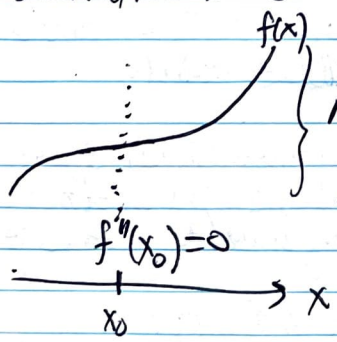 f(x)
f''(x₀)=0
x
x₀